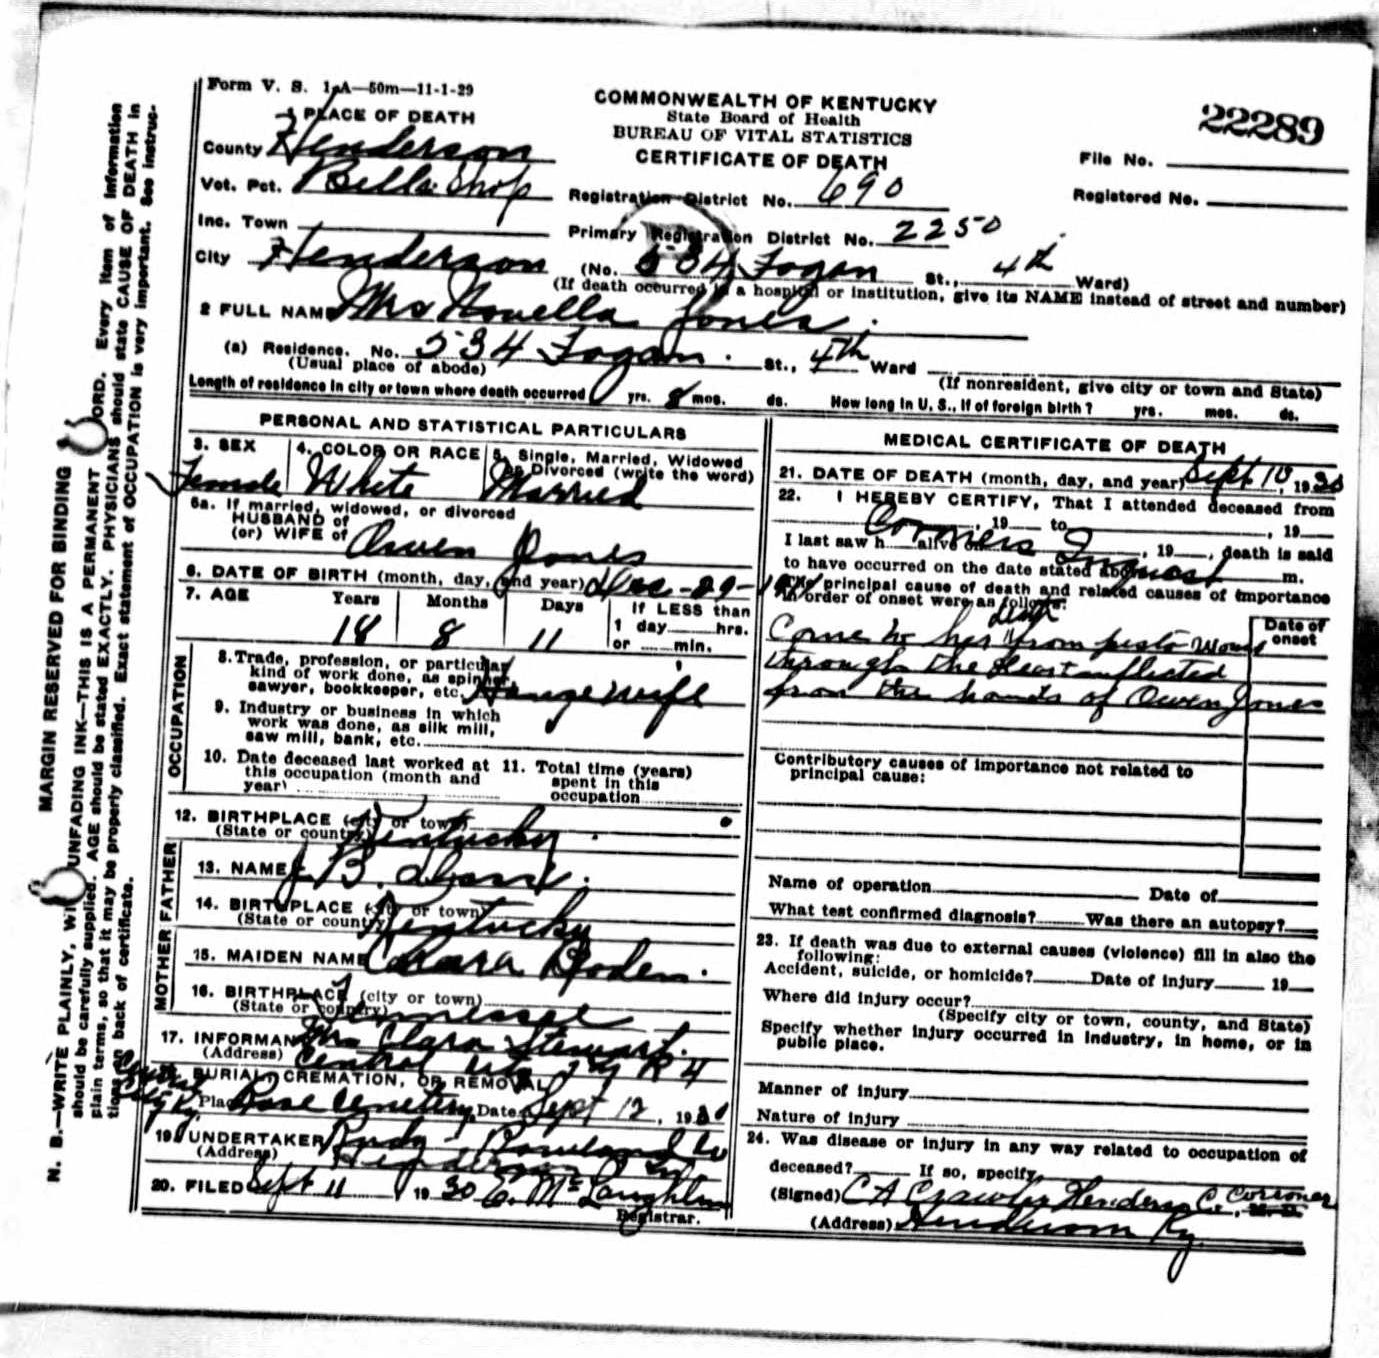 Form V. S. 1-A—50m—11-1-29
COMMONWEALTH OF KENTUCKY
State Board of Health
BUREAU OF VITAL STATISTICS
CERTIFICATE OF DEATH
22289
File No.
Registered No.
1 PLACE OF DEATH
County Henderson
Vot. Pct. Bells Shop
Registration District No. 690
Inc. Town
Primary Registration District No. 2250
City Henderson (No. 534 Fagan St., 4th Ward)
(If death occurred in a hospital or institution, give its NAME instead of street and number)
2 FULL NAME Mrs Novella Jones
(a) Residence. No. 534 Fagan St., 4th Ward
(Usual place of abode)
(If nonresident, give city or town and State)
Length of residence in city or town where death occurred yrs. 8 mos. ds. How long in U. S., if of foreign birth? yrs. mos. ds.
PERSONAL AND STATISTICAL PARTICULARS
3. SEX
Female
4. COLOR OR RACE
White
5. Single, Married, Widowed
or Divorced (write the word)
Married
6a. If married, widowed, or divorced
HUSBAND of
(or) WIFE of Owen Jones
6. DATE OF BIRTH (month, day, and year) Dec-29-
7. AGE Years Months Days If LESS than
1 day hrs.
or min.
18 8 11
OCCUPATION
8. Trade, profession, or particular
kind of work done, as spinner,
sawyer, bookkeeper, etc. House wife
9. Industry or business in which
work was done, as silk mill,
saw mill, bank, etc.
10. Date deceased last worked at
this occupation (month and
year)
11. Total time (years)
spent in this
occupation
12. BIRTHPLACE (city or town)
(State or country) Kentucky
FATHER
13. NAME J B.
14. BIRTHPLACE (city or town)
(State or country) Kentucky
MOTHER
15. MAIDEN NAME Clara Boden
16. BIRTHPLACE (city or town)
(State or country) Tennessee
17. INFORMANT Mrs Clara Stewart
(Address) Central City Ky R 4
18. BURIAL, CREMATION, OR REMOVAL
Place Rose Cemetery Date Sept 12, 1930
Central City Ky.
19. UNDERTAKER Rudy - Rowland Co
(Address) Henderson Ky
20. FILED Sept 11 1930 C. McLaughlin
Registrar.
MEDICAL CERTIFICATE OF DEATH
21. DATE OF DEATH (month, day, and year) Sept 10, 1930
22. I HEREBY CERTIFY, That I attended deceased from
, 19 to , 19
I last saw h alive on , 19 , death is said
Corners Inquest
to have occurred on the date stated above, m.
The principal cause of death and related causes of importance
in order of onset were as follows:
Date of
onset
Come to her death from pistol wound
through the Heart inflected
from the hands of Owen Jones
Contributory causes of importance not related to
principal cause:
Name of operation Date of
What test confirmed diagnosis? Was there an autopsy?
23. If death was due to external causes (violence) fill in also the
following:
Accident, suicide, or homicide? Date of injury 19
Where did injury occur?
(Specify city or town, county, and State)
Specify whether injury occurred in industry, in home, or in
public place.
Manner of injury
Nature of injury
24. Was disease or injury in any way related to occupation of
deceased? If so, specify
(Signed) C A Crawley Henderson Co. Corroner, M. D.
(Address) Henderson Ky.
MARGIN RESERVED FOR BINDING
N. B.—WRITE PLAINLY, WITH UNFADING INK—THIS IS A PERMANENT RECORD. Every item of information
should be carefully supplied. AGE should be stated EXACTLY. PHYSICIANS should state CAUSE OF DEATH in
plain terms, so that it may be properly classified. Exact statement of OCCUPATION is very important. See instruc-
tions on back of certificate.